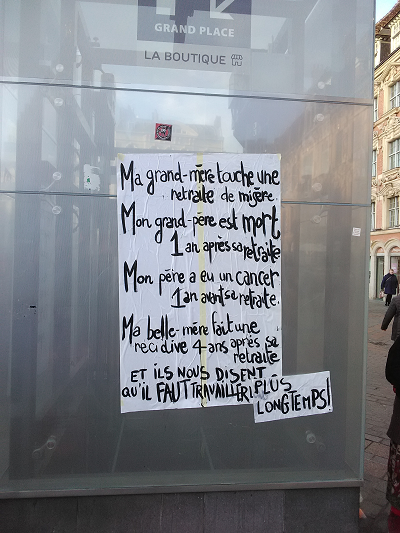 GRAND PLACE
LA BOUTIQUE
Ma grand-mère touche une
retraite de misère.
Mon grand-père est mort
1 an après sa
retraite
Mon père a eu un cancer
1 an avant sa retraite.
Ma belle-mère fait une
recidive 4 ans après sa
retraite
ET ILS NOUS DISENT
QU'IL FAUT TRAVAILLER PLUS
LONGTEMPS!